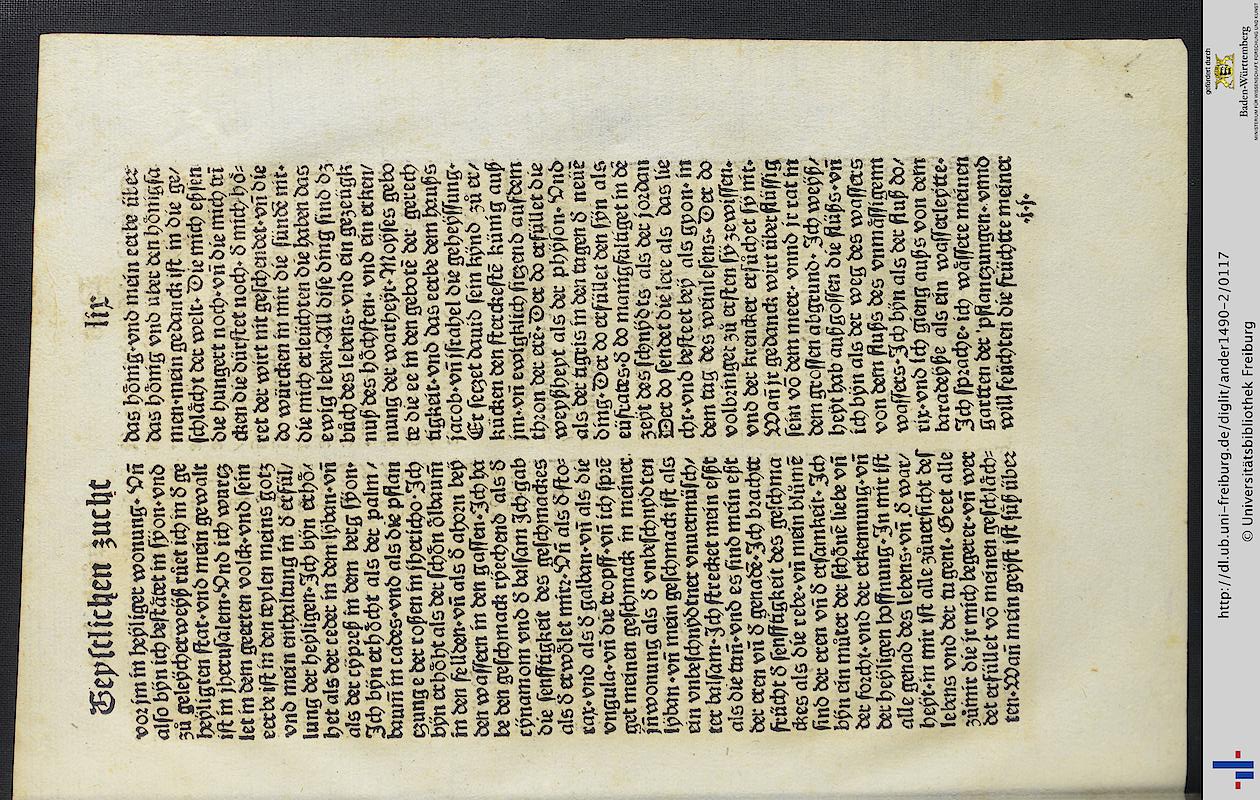 Geystlichen zucht lix
vor im in heyliger wonung· Vñ
also byn ich bestätet in syon· vnd
zů geleycherweyß růet ich in d̕ ge
heyligten stat· vnd mein gewalt
ist in jherusalem· Vnd ich wurtz
let in dem geerten volck· vnd sein
erbe ist in den teylen meins gotz
vnd mein enthaltung in d̕ erfül/
lung der heyligen· Ich byn erhö/
het als der ceder in dem lyben· vñ
als der cypreß in dem berg syon·
Ich byn erhöcht als der palm/
baum̄ in cades· vnd als die pflan
tzung der rosen in jherico· Ich
byn erhöht als der schön ölbaum̄
in den fellden· vñ als d̕ ahorn bey
den wassern in den gassen· Ich ha
be den geschmack ryechend als d̕
cynamom vnd d̕ balsam Ich gab
die senfftigkeit des geschmackes
als d̕ erwölet mirr· Vñ als d̕ sto=
rax· vnd als d̕ galban· vñ als die
vngula· vñ die tropff· vñ ich spre
get meinen geschmack in meiner
jnwonung als d̕ vnbeschnydten
lyban· vñ mein geschmack ist als
ein vnbeschnydtner vnuermüsch/
ter balsam· Ich strecket mein eſst
als die tañ· vnd es sind mein eſst
der eren vñ d̕ genade· Ich brachtt
frücht d̕ senfftigkeit des geschma
ckes als die rebe· vñ mein blůmē
sind der eren vñ d̕ ersamkeit· Ich
byn ein můter der schönē liebe vñ
der forcht· vnd der erkennung· vñ
der heyligen hoffnung· In mir ist
alle genad des lebens· vñ d̕ war/
heyt· in mir ist alle zůuersicht des
lebens vnd der tugent· Geet alle
zůmir die ir mich begeret· vñ wer
det erfüllet vō meinen geschläch=
ten· Wañ mein geyst ist süß über
das hönig· vnd mein erbe über
das hönig vnd über den hönigsa
men· mein gedanck ist in die ge/
schlächt der welt· Die mich essen
die hungert noch· vñ die mich tri
cken die dürstet noch· d̕ mich hö=
ret der wirt nit geschendet· vñ die
do würcken in mir die sünden nit·
die mich erleüchten die haben das
ewig leben· All dise ding sind dz
bůch des lebens· vnd ein gezeügk
nuß des höchsten· vnd ein erken/
nung der warheyt· Moyses gebo
te die ee in den gebotē der gerech
tigkeit· vnd das erbe dem hauß
jacob· vñ jsrahel die geheyssung·
Er setzet dauid sein kind zů er/
kücken den sterckestē kung auß
jm· vñ ewigklich sitzend auf dem
thron der ere· Der do erfüllet die
weyßheyt als der physon· Vnd
als der tigris in den tagen d̕ neüē
ding· Der do erfüllet den syn als
eüfrates· d̕ do manigfaltiget in dē
zeyt des schnydts als der jordan
Der do sendet die lere als das lie
cht· vnd bestreet bey als gyon· in
den tag des weinlesens· Der do
volbringet zů ersten sy zewissen·
vnd der krencker ersüchet sy nit·
Wañ jr gedanck wirt überflüssig
sein vō dem meer· vnnd jr rat in
dem grossen abgrund· Ich weyß/
heyt hab außgossen die flüß· vñ
ich byn als der weg des wassers
von dem fluß des vnmässigenn
wassers· Ich byn als der fluß do/
rix· vnd ich gieng auß von dem
baradeyße als ein wasserleytte·
Ich sprache· ich wässere meinen
gartten der pflantzungen· vnnd
will feüchten die früchtte meiner
http://dl.ub.uni-freiburg.de/diglit/ander1490-2/0117
© Universitätsbibliothek Freiburg
gefördert durch
Baden-Württemberg
MINISTERIUM FÜR WISSENSCHAFT, FORSCHUNG UND KUNST